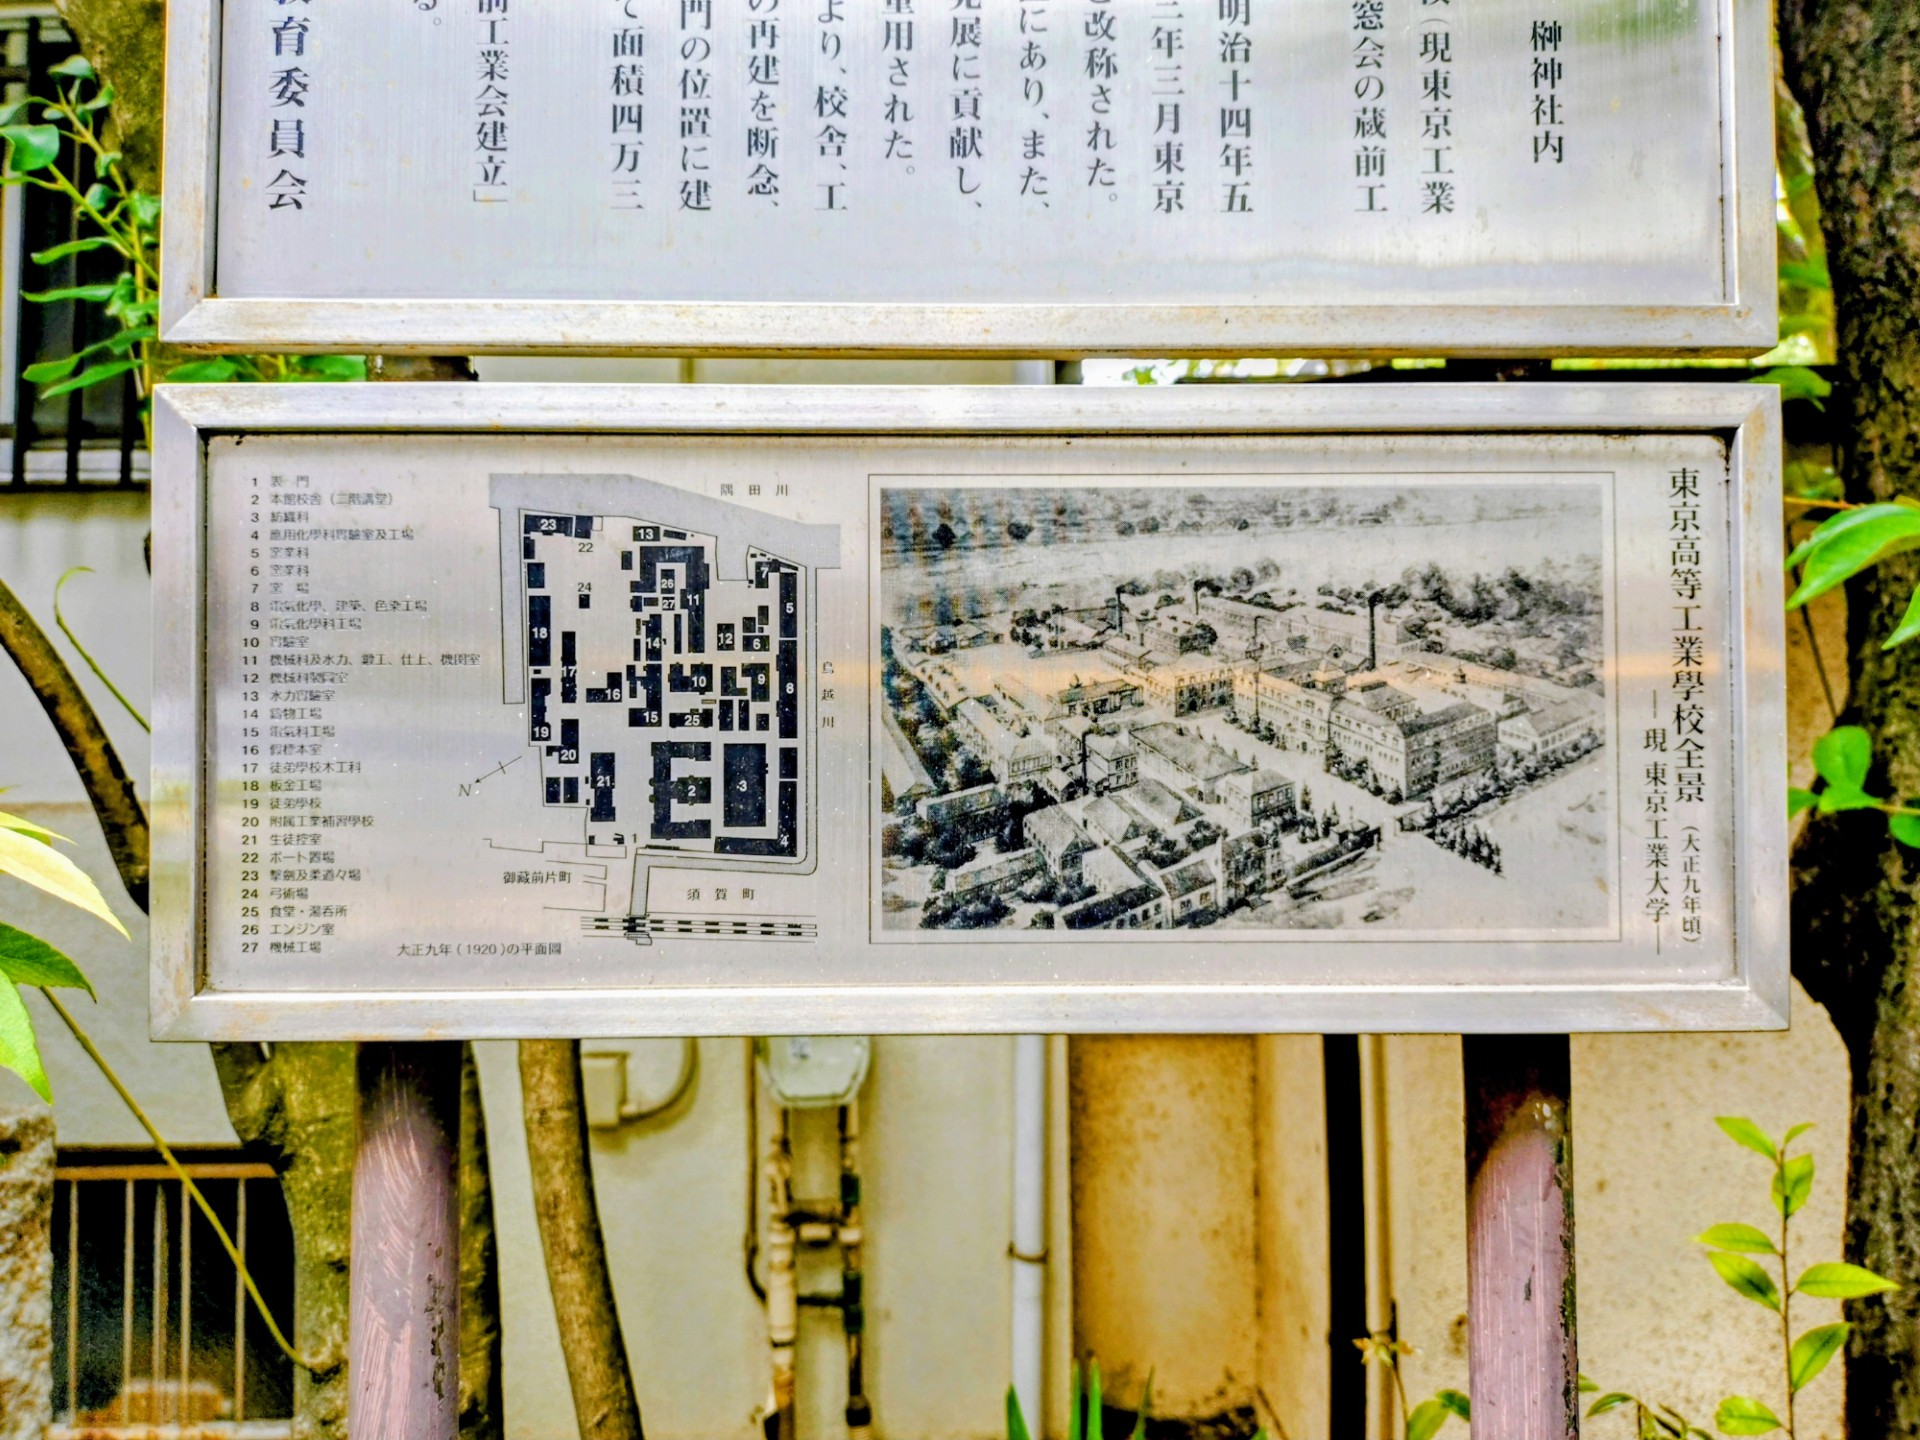 榊神社内
（現東京工業
窓会の蔵前工
明治十四年五
三年三月東京
改称された。
にあり、また、
発展に貢献し、
重用された。
より、校舎、工
の再建を断念、
門の位置に建
て面積四万三
前工業会建立」
る。
教育委員会
東京高等工業學校全景（大正九年頃）
―現 東京工業大学―
1 表門
2 本館校舎（二階講堂）
3 紡織科
4 應用化學科實驗室及工場
5 窯業科
6 窯業科
7 窯場
8 電気化學、建築、色染工場
9 電気化學科工場
10 實驗室
11 機械科及水力、鍛工、仕上、機関室
12 機械科製図室
13 水力實驗室
14 鋳物工場
15 電気科工場
16 假標本室
17 徒弟學校木工科
18 板金工場
19 徒弟學校
20 附属工業補習學校
21 生徒控室
22 ボート置場
23 撃劍及柔道々場
24 弓術場
25 食堂・湯呑所
26 エンジン室
27 機械工場
隅田川
鳥越川
23
22
13
24
26
27
11
7
5
18
14
12
6
17
16
10
9
8
15
25
19
20
21
2
3
4
1
N
御蔵前片町
須賀町
大正九年（1920）の平面図